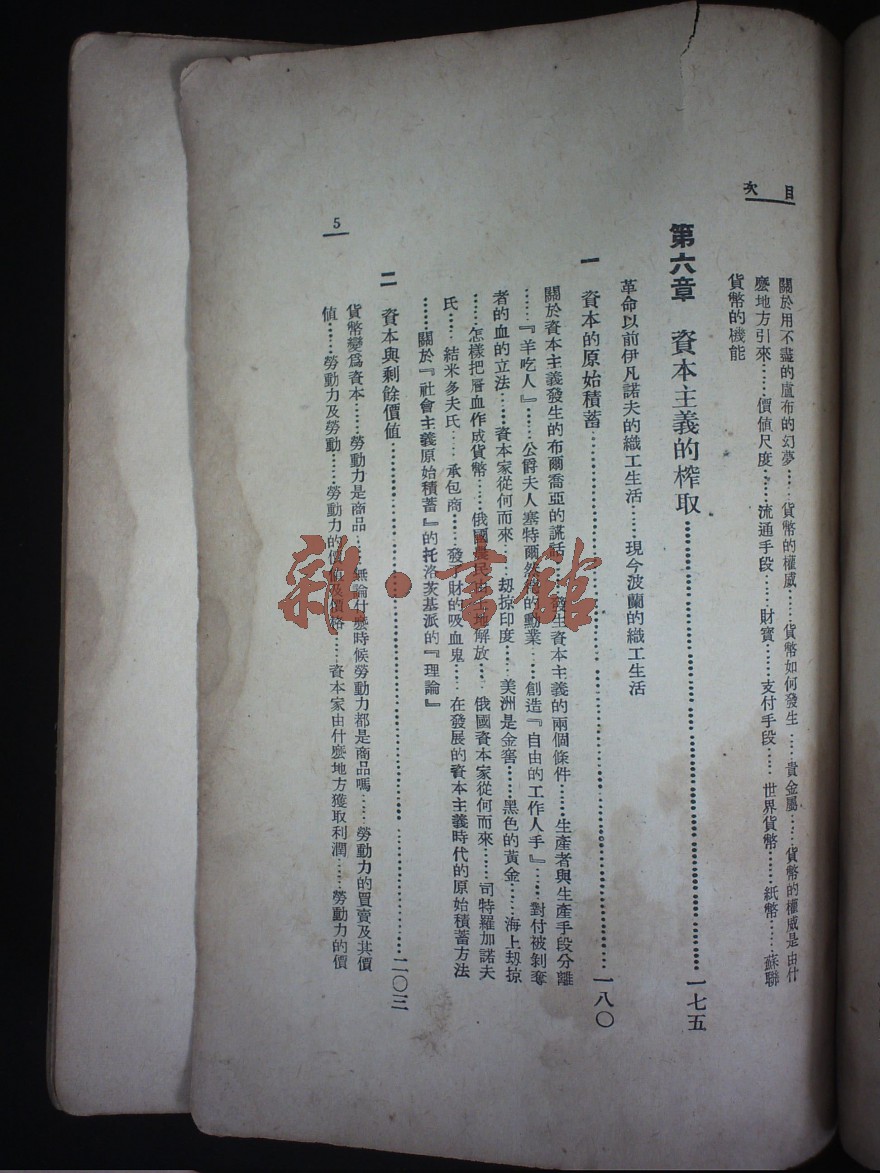 目次
關於用不盡的盧布的幻夢……貨幣的權威……貨幣如何發生……貴金屬……貨幣的權威是由什
麽地方引來……價值尺度……流通手段……財寶……支付手段……世界貨幣……紙幣……蘇聯
貨幣的機能
第六章 資本主義的榨取……一七五
革命以前伊凡諾夫的織工生活……現今波蘭的織工生活
一 資本的原始積蓄……一八〇
關於資本主義發生的布爾喬亞的謊話……發生資本主義的兩個條件……生產者與生產手段分離
……『羊吃人』……公爵夫人塞特爾然德的勳業……創造『自由的工作人手』……對付被剝奪
者的血的立法……資本家從何而來……刧掠印度……美洲是金窖……黑色的黃金……海上刧掠
……怎樣把層血作成貨幣……俄國農民由土地解放……俄國資本家從何而來……司特羅加諾夫
氏……結米多夫氏……承包商……發了財的吸血鬼……在發展的資本主義時代的原始積蓄方法
……關於『社會主義原始積蓄』的托洛茨基派的『理論』
二 資本與剩餘價值……二〇三
貨幣變爲資本……勞動力是商品……無論什麽時候勞動力都是商品嗎……勞動力的買賣及其價
值……勞動力及勞動……勞動力的價值及價格……資本家由什麽地方獲取利潤……勞動力的價
5
雜·書館